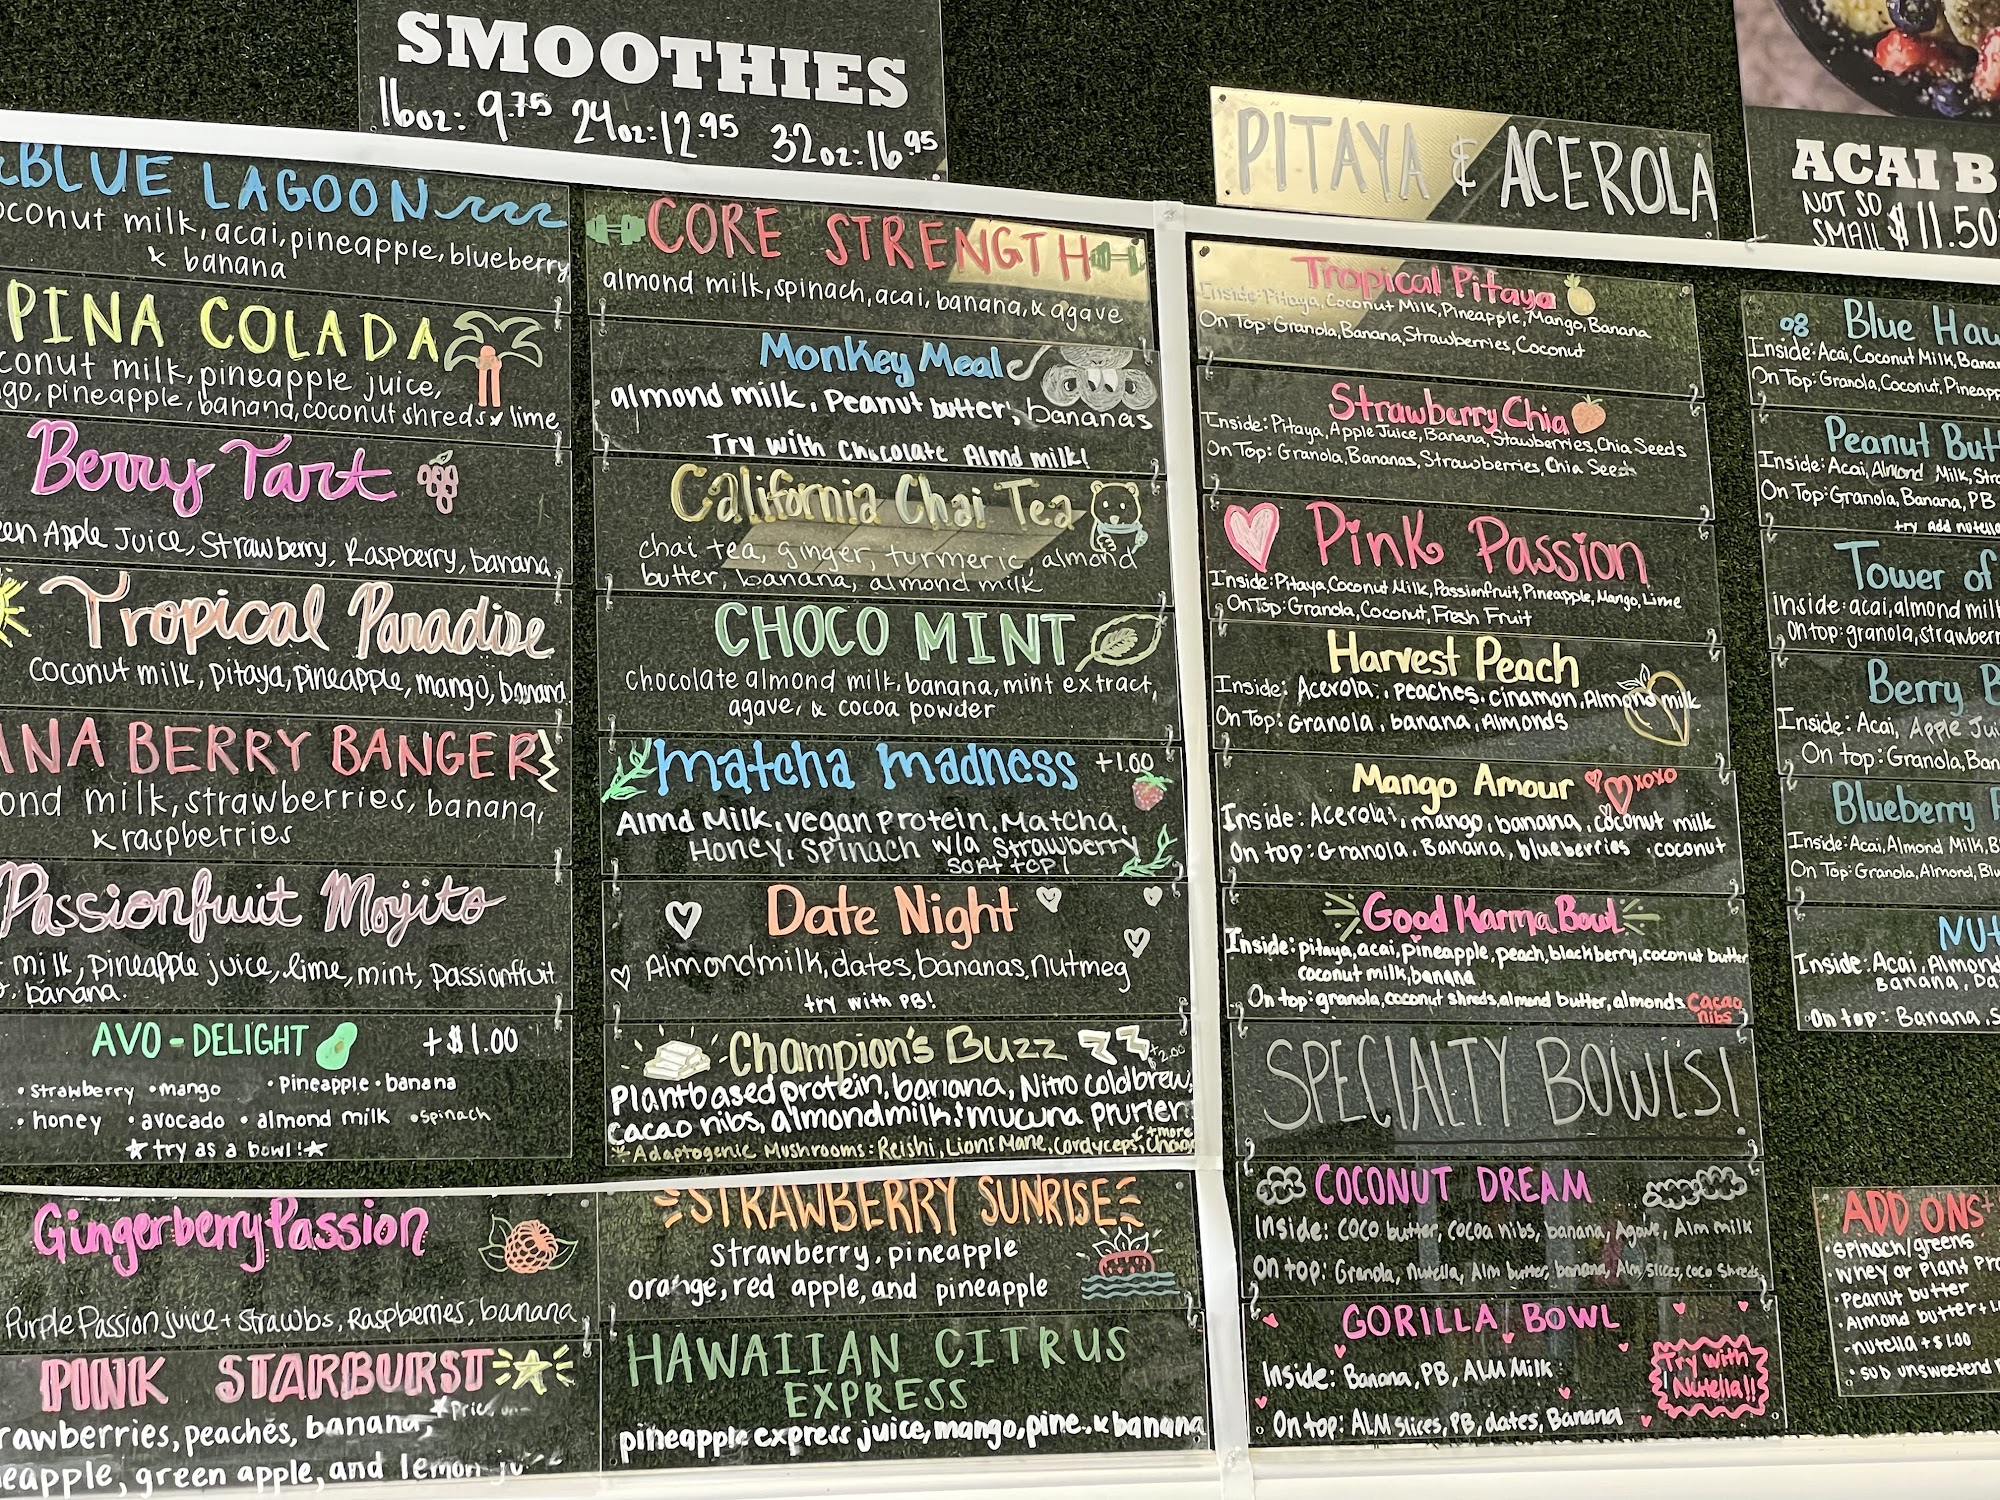 SMOOTHIES
16oz: 9.75 24oz: 12.95 32oz: 16.95
BLUE LAGOON
coconut milk, acai, pineapple, blueberry
& banana
PINA COLADA
conut milk, pineapple juice,
go, pineapple, banana, coconut shreds & lime
Berry Tart
en Apple Juice, Strawberry, Raspberry, banana
Tropical Paradise
coconut milk, pitaya, pineapple, mango, banana
NA BERRY BANGER
ond milk, strawberries, banana,
& raspberries
Passionfruit Mojito
milk, pineapple juice, lime, mint, passionfruit
banana.
AVO-DELIGHT +$1.00
• strawberry • mango • pineapple • banana
• honey • avocado • almond milk • spinach
★ try as a bowl! ★
Gingerberry Passion
Purple Passion juice + strawbs, Raspberries, banana
PINK STARBURST
rawberries, peaches, banana,
eapple, green apple, and lemon ju
CORE STRENGTH
almond milk, spinach, acai, banana, & agave
Monkey Meal
almond milk, Peanut butter, bananas
Try with Chocolate Almd milk!
California Chai Tea
chai tea, ginger, turmeric, almond
butter, banana, almond milk
CHOCO MINT
chocolate almond milk, banana, mint extract,
agave, & cocoa powder
Matcha Madness +1.00
Almd Milk, vegan protein, Matcha,
Honey, Spinach w/a strawberry
soft top!
Date Night
Almondmilk, dates, bananas, nutmeg
try with PB!
Champion's Buzz +2.00
Plantbased protein, banana, Nitro coldbrew,
cacao nibs, almondmilk! mucuna prurier
+more
Adaptogenic Mushrooms: Reishi, Lions Mane, Cordyceps, Chaga
STRAWBERRY SUNRISE
strawberry, pineapple
orange, red apple, and pineapple
HAWAIIAN CITRUS
EXPRESS
pineapple express juice, mango, pine, & banana
PITAYA & ACEROLA
Tropical Pitaya
Inside: Pitaya, Coconut Milk, Pineapple, Mango, Banana
On Top: Granola, Banana, Strawberries, Coconut
Strawberry Chia
Inside: Pitaya, Apple Juice, Banana, Stawberries, Chia Seeds
On Top: Granola, Bananas, Strawberries, Chia Seeds
Pink Passion
Inside: Pitaya, Coconut Milk, Passionfruit, Pineapple, Mango, Lime
On Top: Granola, Coconut, Fresh Fruit
Harvest Peach
Inside: Acerola, peaches, cinamon, Almond milk
On Top: Granola, banana, Almonds
Mango Amour xoxo
Inside: Acerola, mango, banana, coconut milk
On top: Granola, Banana, blueberries, coconut
Good Karma Bowl
Inside: pitaya, acai, pineapple, peach, blackberry, coconut butter
coconut milk, banana
On top: granola, coconut shreds, almond butter, almonds cacao
nibs
SPECIALTY BOWLS!
COCONUT DREAM
Inside: coco butter, cocoa nibs, banana, Agave, Alm milk
On top: Granola, nutella, Alm butter, banana, Alm slices, coco Shreds
GORILLA BOWL
Inside: Banana, PB, ALM Milk
On top: ALM slices, PB, dates, Banana
Try with
Nutella!!
ACAI B
NOT SO
SMALL $11.50
Blue Haw
Inside: Acai, Coconut Milk, Banan
On Top: Granola, Coconut, Pineapp
Peanut Butt
Inside: Acai, Almond Milk, Stra
On Top: Granola, Banana, PB
try add nutella
Tower of
inside: acai, almond milk
On top: granola, strawberr
Berry B
Inside: Acai, Apple Jui
On top: Granola, Ban
Blueberry
Inside: Acai, Almond Milk, B
On Top: Granola, Almond, Blu
NUT
Inside: Acai, Almond
Banana, Da
On top: Banana, S
ADD ONS
• spinach/greens
• Whey or Plant Pro
• Peanut butter
• Almond butter + 1.
• nutella + $1.00
• sub unsweetend